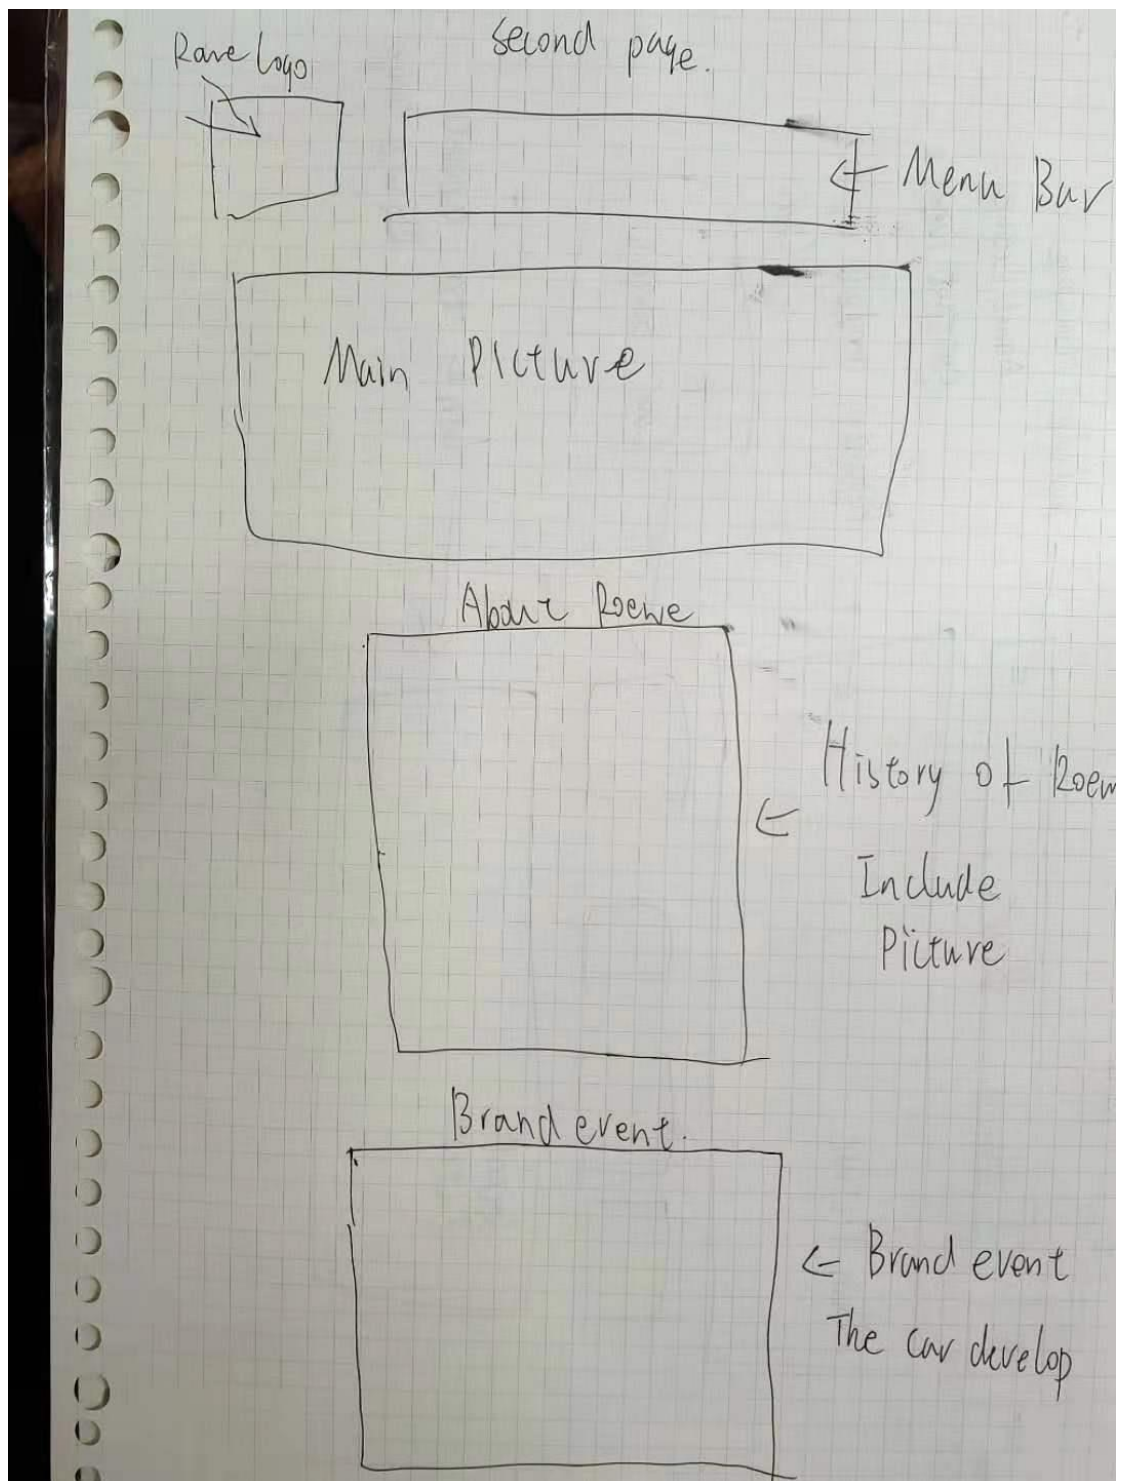 second page.
Rowe logo
Menu Bar
Main Picture
About Roewe
History of Roew
Include
Picture
Brand event.
Brand event
The car develop